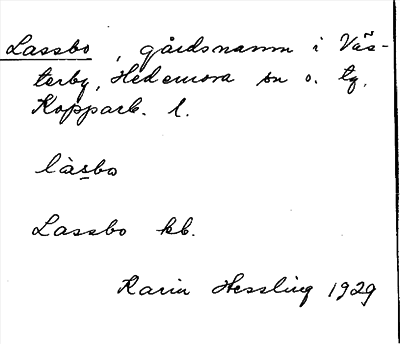 Lassbo, gårdsnamn i Väs-
terby, Hedemora sn o. tg.
Kopparb. l.
làsbo
Lassbo kb.
Karin Hessling 1929